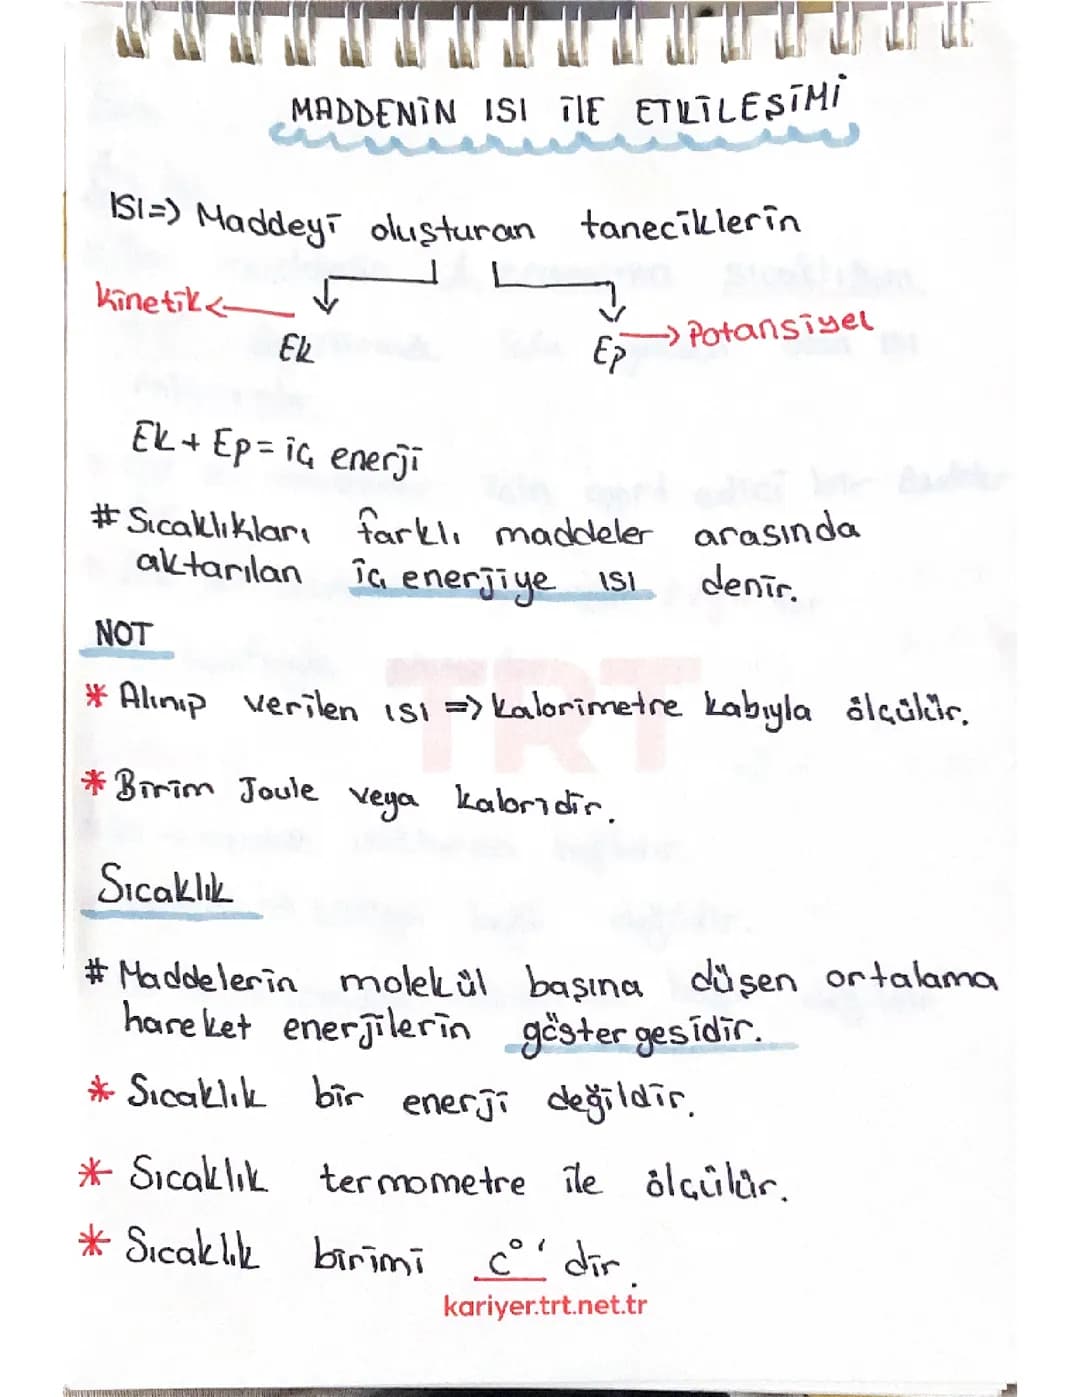 MADDENİN ISI İLE ETKİLEŞİMİ
ISI=> Maddeyi oluşturan taneciklerin
Kinetik <— —> Potansiyel
Ek Ep
Ek + Ep = iç enerji
# Sıcaklıkları farklı maddeler arasında
aktarılan iç enerjiye ISI denir.
NOT
* Alınıp verilen ısı => kalorimetre kabıyla ölçülür.
TRT
* Birim Joule veya kaloridir.
Sıcaklık
# Maddelerin molekül başına düşen ortalama
hareket enerjilerin göstergesidir.
* Sıcaklık bir enerji değildir.
* Sıcaklık termometre ile ölçülür.
* Sıcaklık birimi C°' dir.
kariyer.trt.net.tr